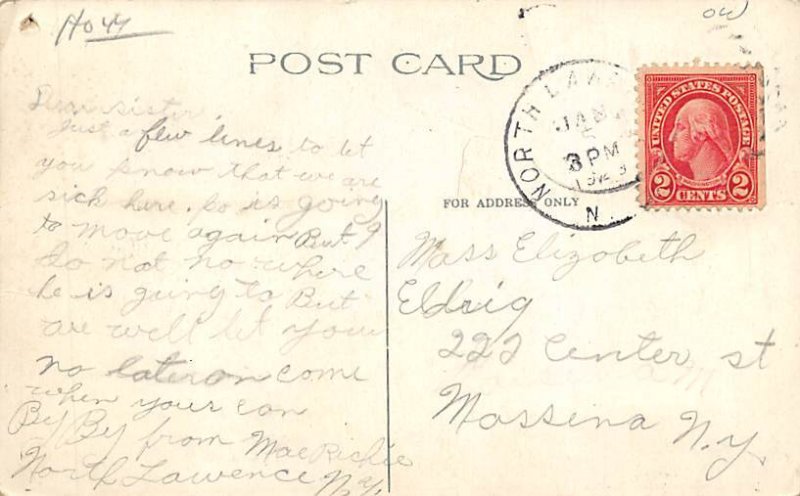 Ho 47
OW
POST CARD
NORTH LAW
JAN
5
3 PM
192
N.
UNITED STATES POSTAGE
WASHINGTON
2 CENTS 2
Dear sister
Just a few lines to let
you know that we are
sick here. Bo is going
to move again But I
do not no where
he is going to But
are well let you
no later on come
when your can
By By from Mae Richie
North Lawence N.y.
FOR ADDRESS ONLY
Mass Elizabeth
Eldrig
222 Center st
Massena N.y.